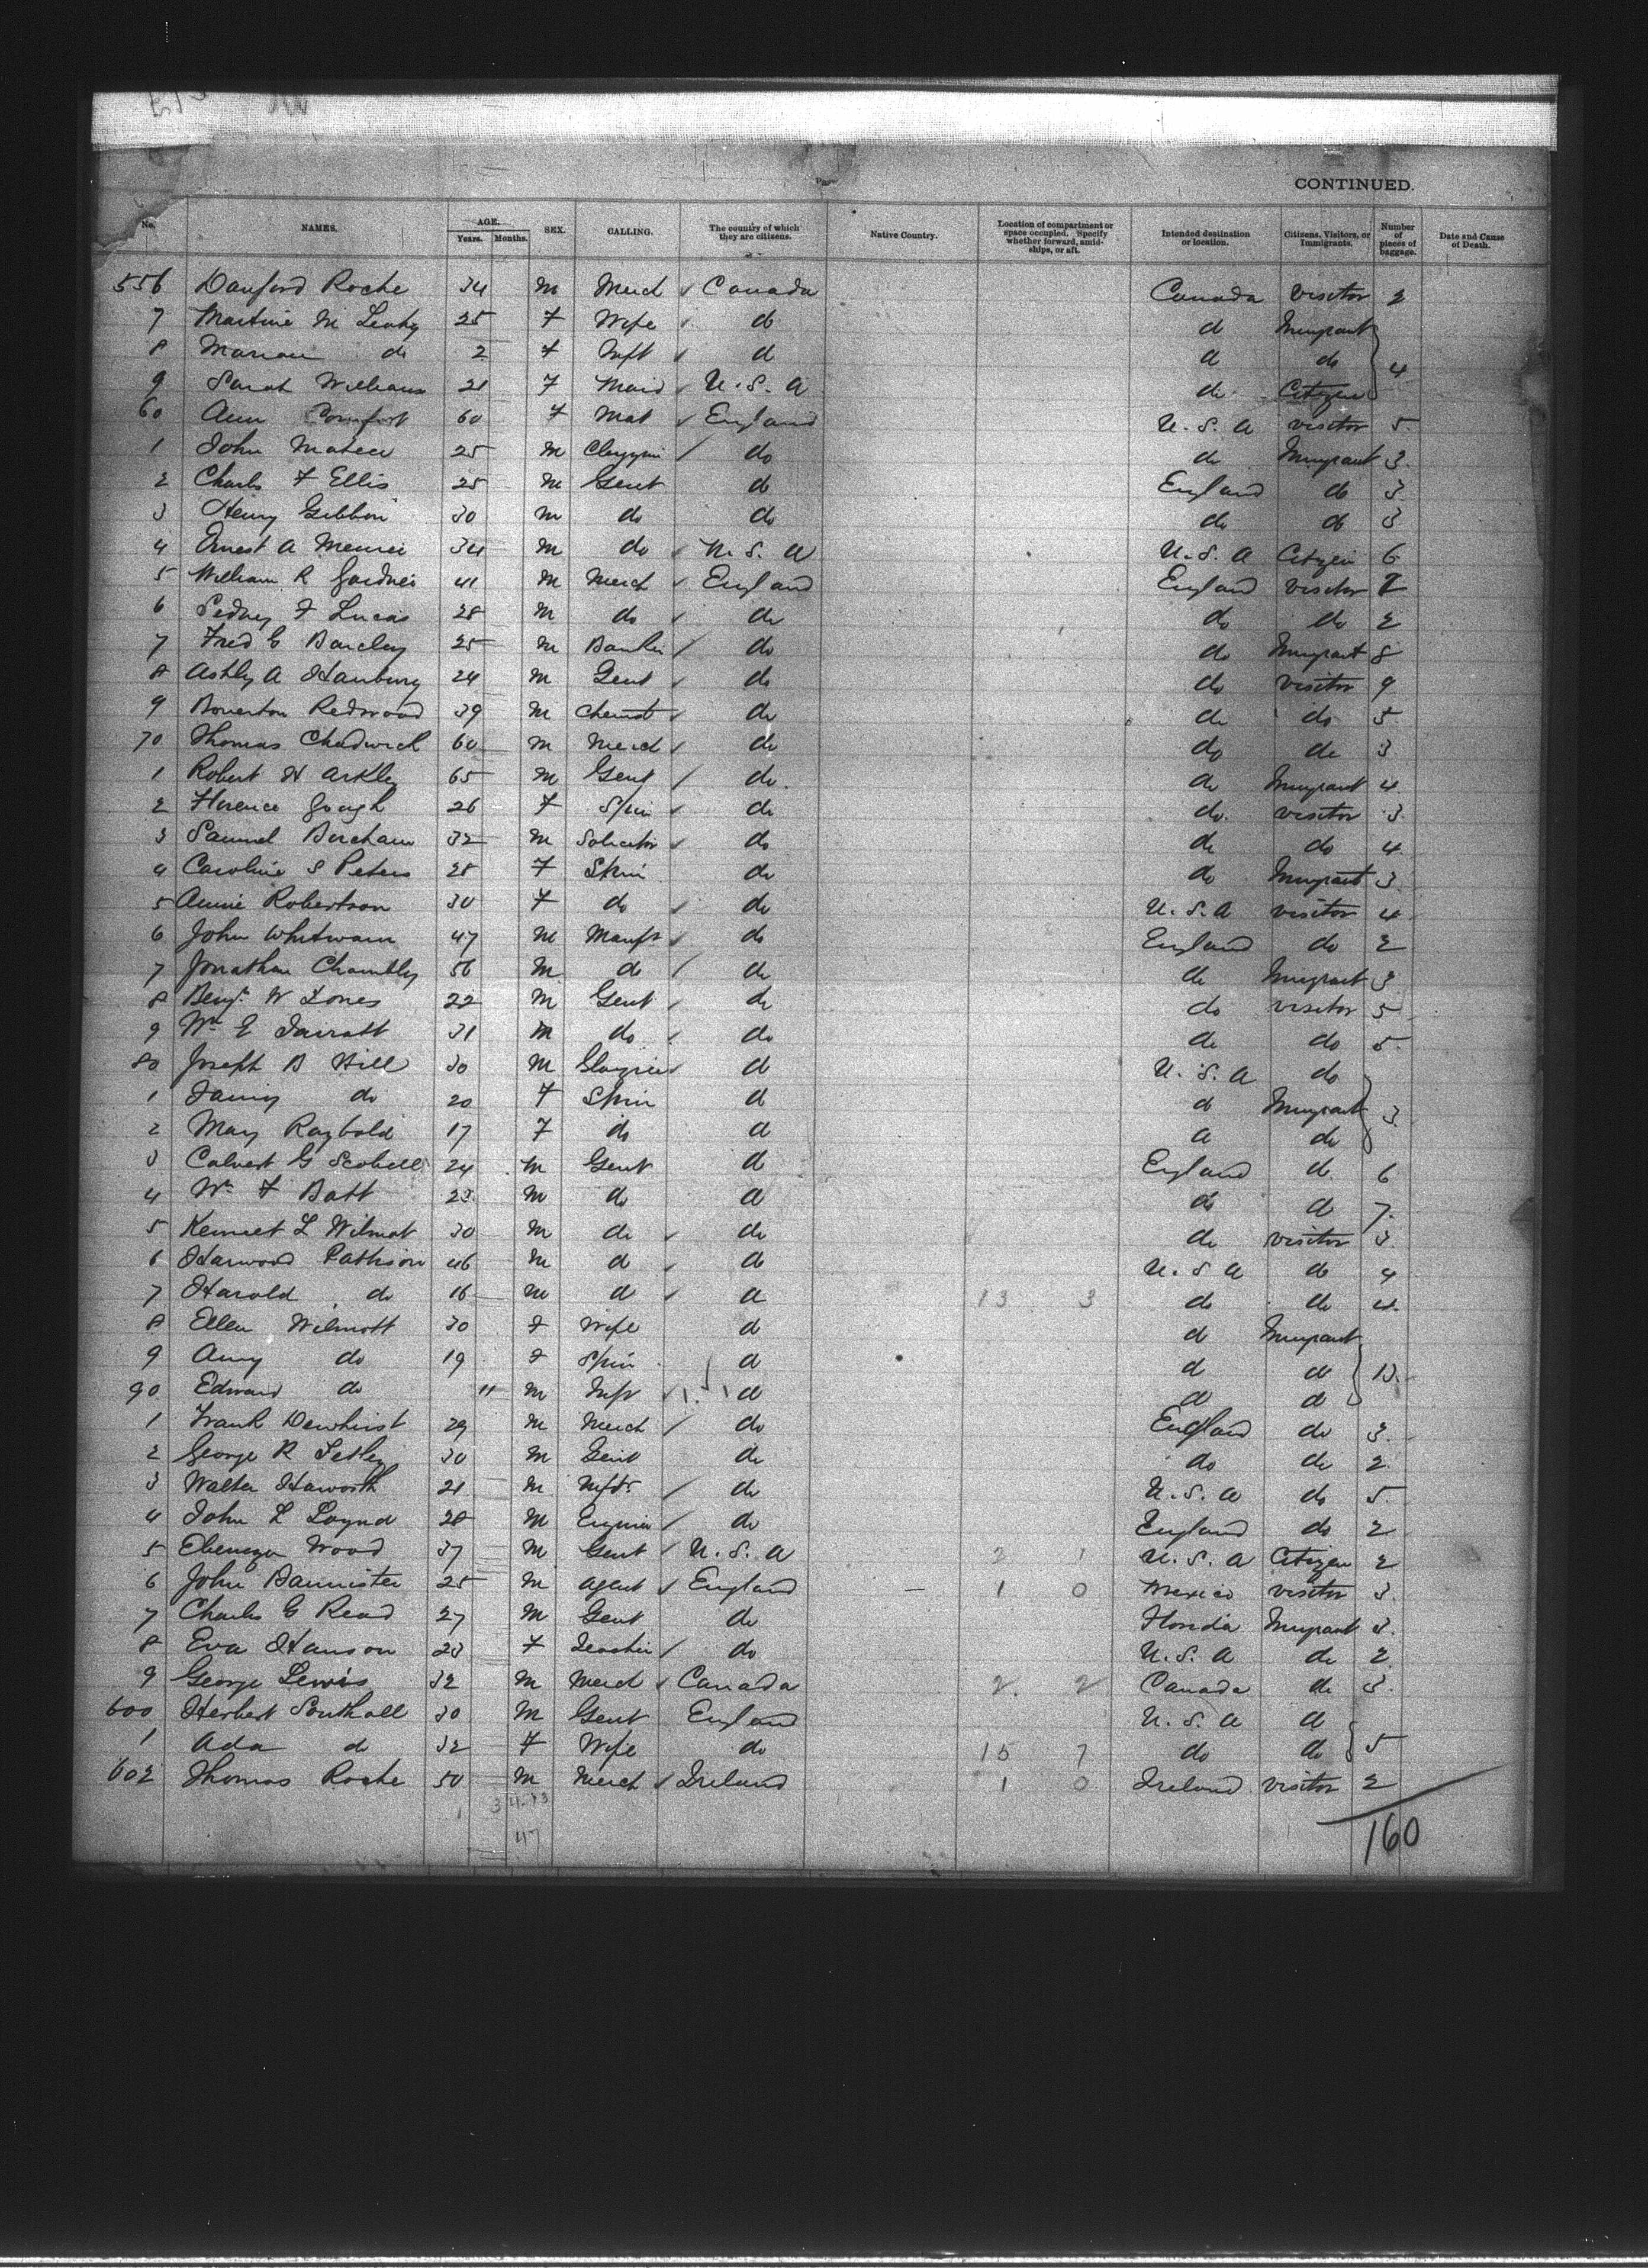 CONTINUED.
No. NAMES. AGE. Years. Months. SEX. CALLING. The country of which they are citizens. Native Country. Location of compartment or space occupied. Specify whether forward, amidships, or aft. Intended destination or location. Citizens, Visitors, or Immigrants. Number of pieces of baggage. Date and Cause of Death.
556 Danford Roche 34 m Merch Canada Canada visitor 2
7 M Leahy 25 F Wife do do Imigrant
8 Marian do 2 F Inft do do do 4
9 Sarah Williams 21 F Maid U.S.A do Citizen
60 Ann Comfort 60 F Mat England U.S.A visitor 5
1 John 25 m do do Imigrant 3
2 Charls F Ellis 25 m Gent do England do 3
3 Henry Gibbon 30 m do do do do 3
4 Ernest A 34 m do U.S.A U.S.A Citizen 6
5 William R Gardner 41 m Merch England England visitor
6 Sedney F Lucas 28 m do do do do 2
7 Fred G Barclay 25 m Banker do do Imigrant 8
8 Ashly A Hanbury 24 m Gent do do visitor 9
9 Boverton Redwood 39 m Chemst do do do 5
70 Thomas Chadwick 60 m Merch do do do 3
1 Robert H Arkley 65 m Gent do do Imigrant 4
2 Florence Gough 26 F Spin do do visitor 3
3 Samuel Bircham 32 m Solicitor do do do 4
4 Caroline S Peters 28 F Spin do do Imigrant 3
5 Annie Robertson 30 F do do U.S.A visitor 4
6 John Whitwam 47 m Manfr do England do 2
7 Jonathan Chambly 56 m do do do Imigrant 3
8 Benj. W Jones 22 m Gent do do visitor 5
9 Wm E Jarratt 31 m do do do do 5
80 Joseph B Hill 30 m do U.S.A do
1 do 20 F Spin do do Imigrant 3
2 May Raybold 17 F do do do do
3 Calvert G Scobell 24 m Gent do England do 6
4 Wm F Batt 23 m do do do do 7
5 Kennet L Wilmot 30 m do do do visitor 3
6 Harwood Pattison 46 m do do U.S.A do 4
7 Harold do 16 m do do 13 3 do do 4
8 Ellen Wilmott 30 F Wife do do Imigrant
9 Amy do 19 F Spin do do do 13
90 Edward do 11 m Inft do do do
1 Frank Dewhirst 29 m Merch do England do 3
2 George R Tetley 30 m Gent do do do 2
3 Walter Haworth 21 m Mftr do U.S.A do 5
4 John L Loynd 28 m Enginer do England do 2
5 Ebenezer Wood 37 m Gent U.S.A 2 1 U.S.A Citizen 2
6 John Bannister 25 m Agent England 1 0 Mexico visitor 3
7 Charles G Read 27 m Gent do Florida Imigrant 3
8 Eva Hanson 23 F Teacher do U.S.A do 2
9 George Lewis 32 m Merch Canada 2 2 Canada do 3
600 Herbert Southall 30 m Gent England U.S.A do
1 Ada do 32 F Wife do 15 7 do do 5
602 Thomas Roche 50 m Merch Ireland 1 0 Ireland visitor 2
47
160